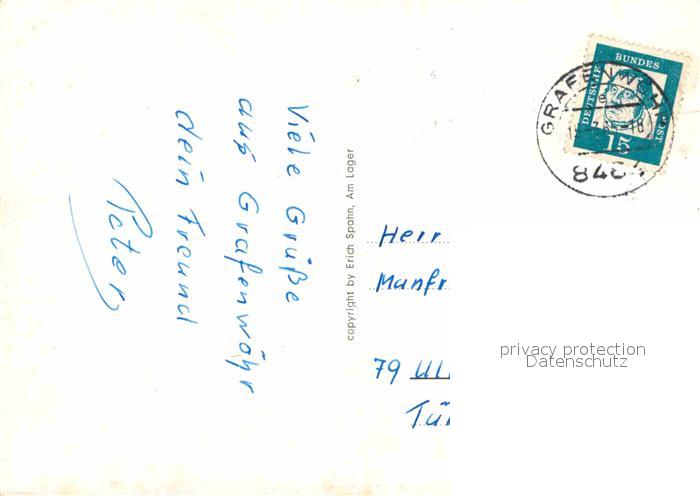 Viele Grüße
aus Grafenwöhr
dein Freund
Peter
copyright by Erich Spahn, Am Lager
DEUTSCHE
BUNDES
POST
15
GRAFENWÖH
848
Herr
Manfr
79 Ul
Tü
privacy protection
Datenschutz